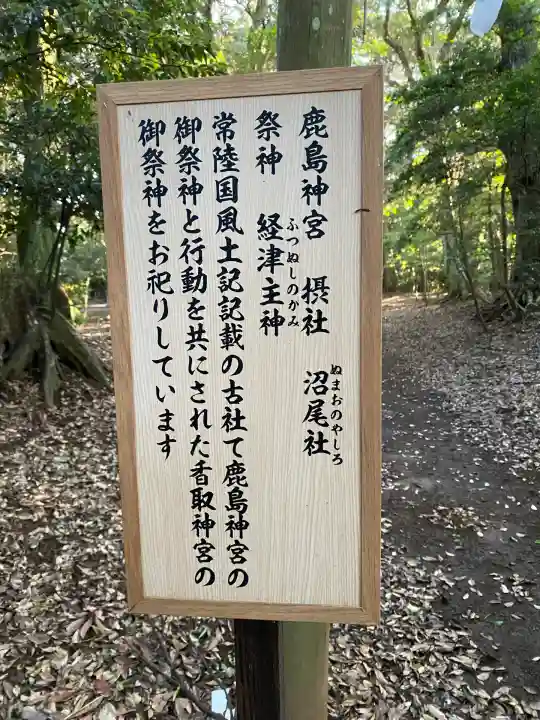 鹿島神宮 摂社 沼尾社
ぬまおのやしろ
祭神 経津主神
ふつぬしのかみ
常陸国風土記記載の古社て鹿島神宮の
御祭神と行動を共にされた香取神宮の
御祭神をお祀りしています